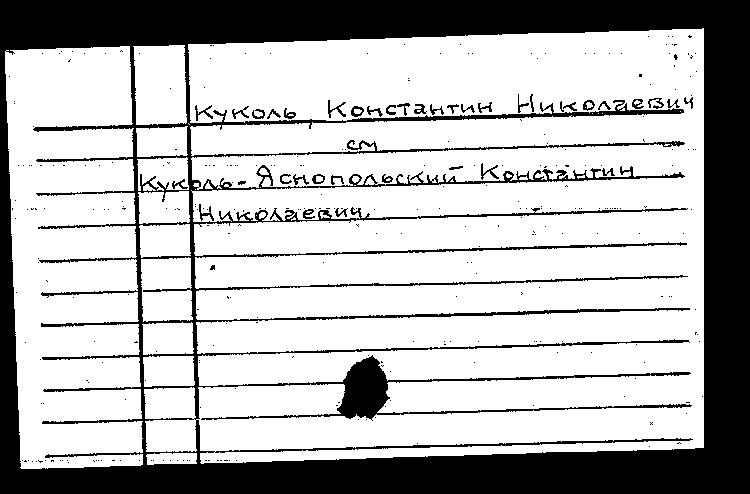 Куколь, Константин Николаевич
см
Куколь-Яснопольский Константин
Николаевич.